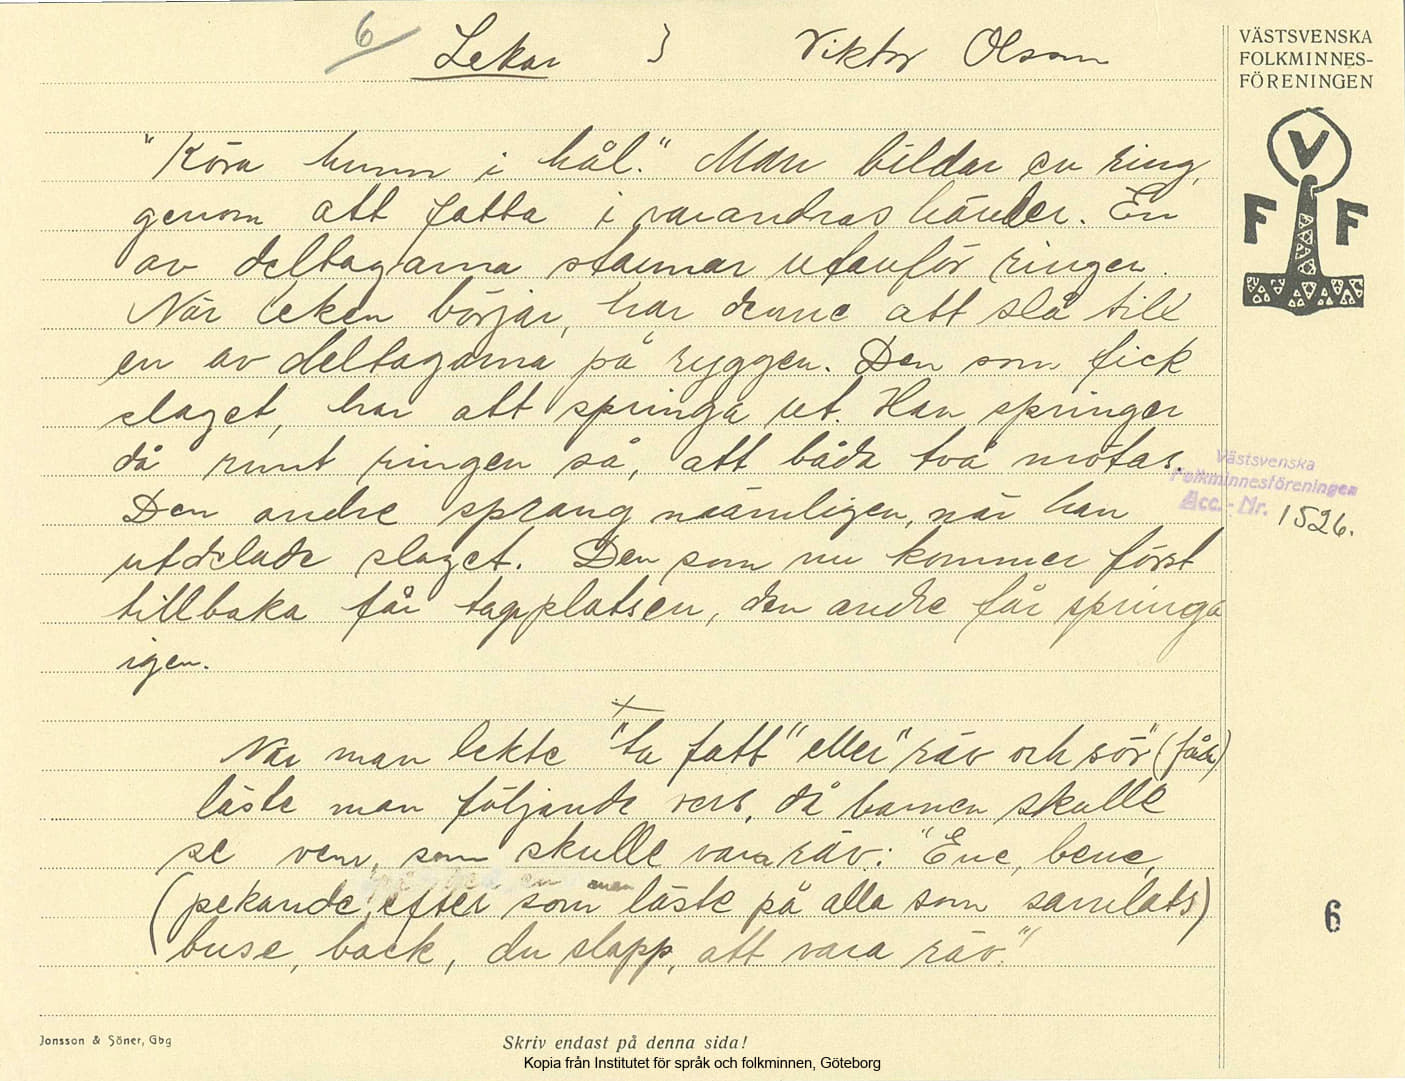 6 Lekar } Viktor Olsson
VÄSTSVENSKA
FOLKMINNES-
FÖRENINGEN
V
F F
"Köra hunn i hål." Man bildar en ring,
genom att fatta i varandras händer. En
av deltagarna stannar utanför ringen.
När leken börjar, har denne att slå till
en av deltagarna på ryggen. Den som fick
slaget, har att springa ut. Han springer
då runt ringen så, att båda två mötas.
Den andre sprang näämligen, när han
utdelade slaget. Den som nu kommer först
tillbaka får tagplatsen, den andre får springa
igen.
Västsvenska
Folkminnesföreningen
Acc.-Nr. 1526.
När man lekte "ta fatt" eller "räv och sör" (får)
läste man följande vers, då barnen skulle
se vem, som skulle vara räv: "Ene, bene,
(pekande, efter som man läste på alla som samlats)
buse, back, du slapp, att vara räv."
6
Jonsson & Söner, Gbg
Skriv endast på denna sida!
Kopia från Institutet för språk och folkminnen, Göteborg